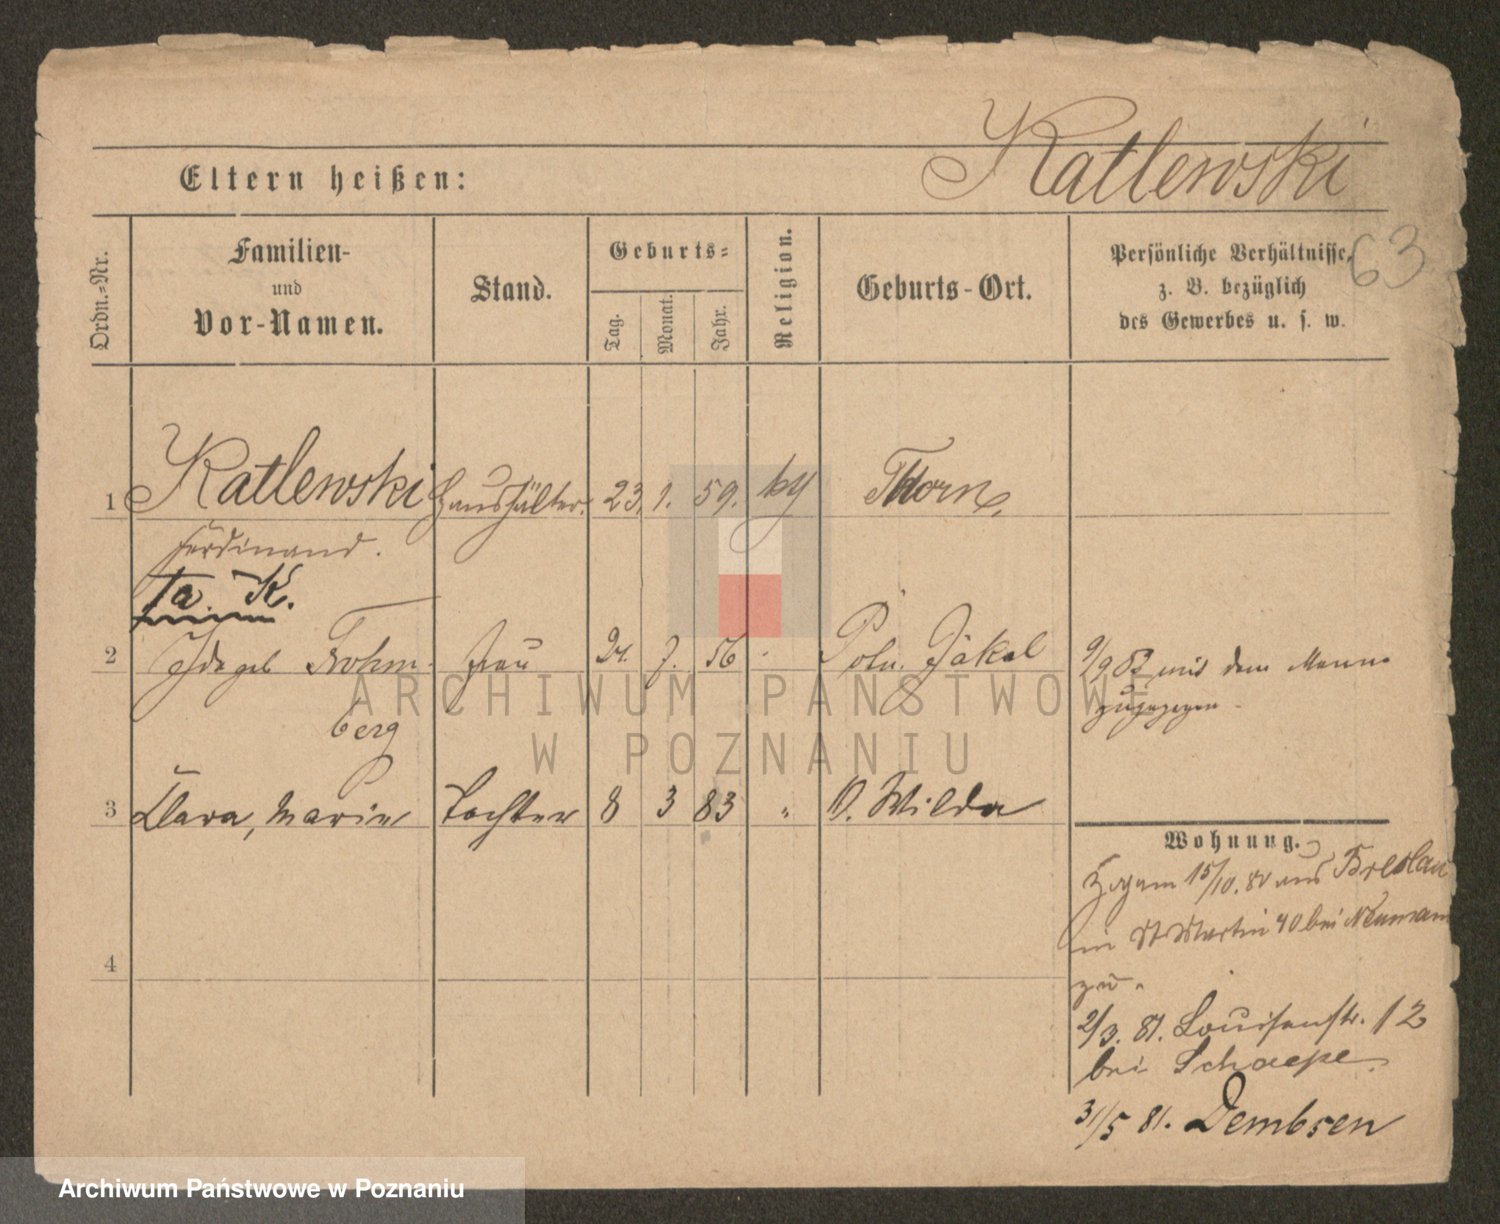 Katlewski
Eltern heißen:
63
Ordn.-Nr.
Familien-
und
Vor-Namen.
Stand.
Geburts-
Tag.
Monat.
Jahr.
Religion.
Geburts-Ort.
Persönliche Verhältnisse,
z. B. bezüglich
des Gewerbes u. s. w.
1 Katlewski Haushälter. 23. 1. 59. Thorn
Ferdinand.
2 Ida geb Frohm- Frau 24. 7. 56 Poln. Jakel
berg
9/9 82 mit dem Manne
zugezogen
3 Clara, Marie Tochter 8 3 83 " O. Wilda
4
Wohnung.
Zog am 15/10. 80 aus Breslau
in St Martin 40 bei Neumann
zu.
2/3. 81. Louisenstr. 12
bei Schaepe.
31/5 81. Dembsen
ARCHIWUM PAŃSTWOWE
W POZNANIU
Archiwum Państwowe w Poznaniu